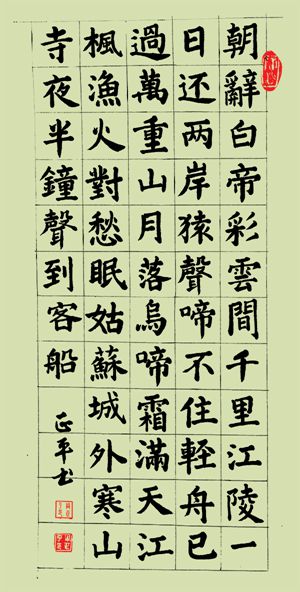 朝辭白帝彩雲間千里江陵一
日还两岸猿聲啼不住輕舟已
過萬重山月落烏啼霜滿天江
楓漁火對愁眠姑蘇城外寒山
寺夜半鐘聲到客船
正平书